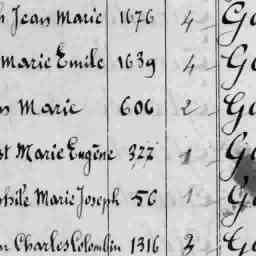 n Jean Marie 1676 4 Go
Marie Emile 1639 4 Go
n Marie 606 2 Go
st Marie Eugène 322 1 Go
phile Marie Joseph 56 1 Go
Charles Colombin 1316 3 Go